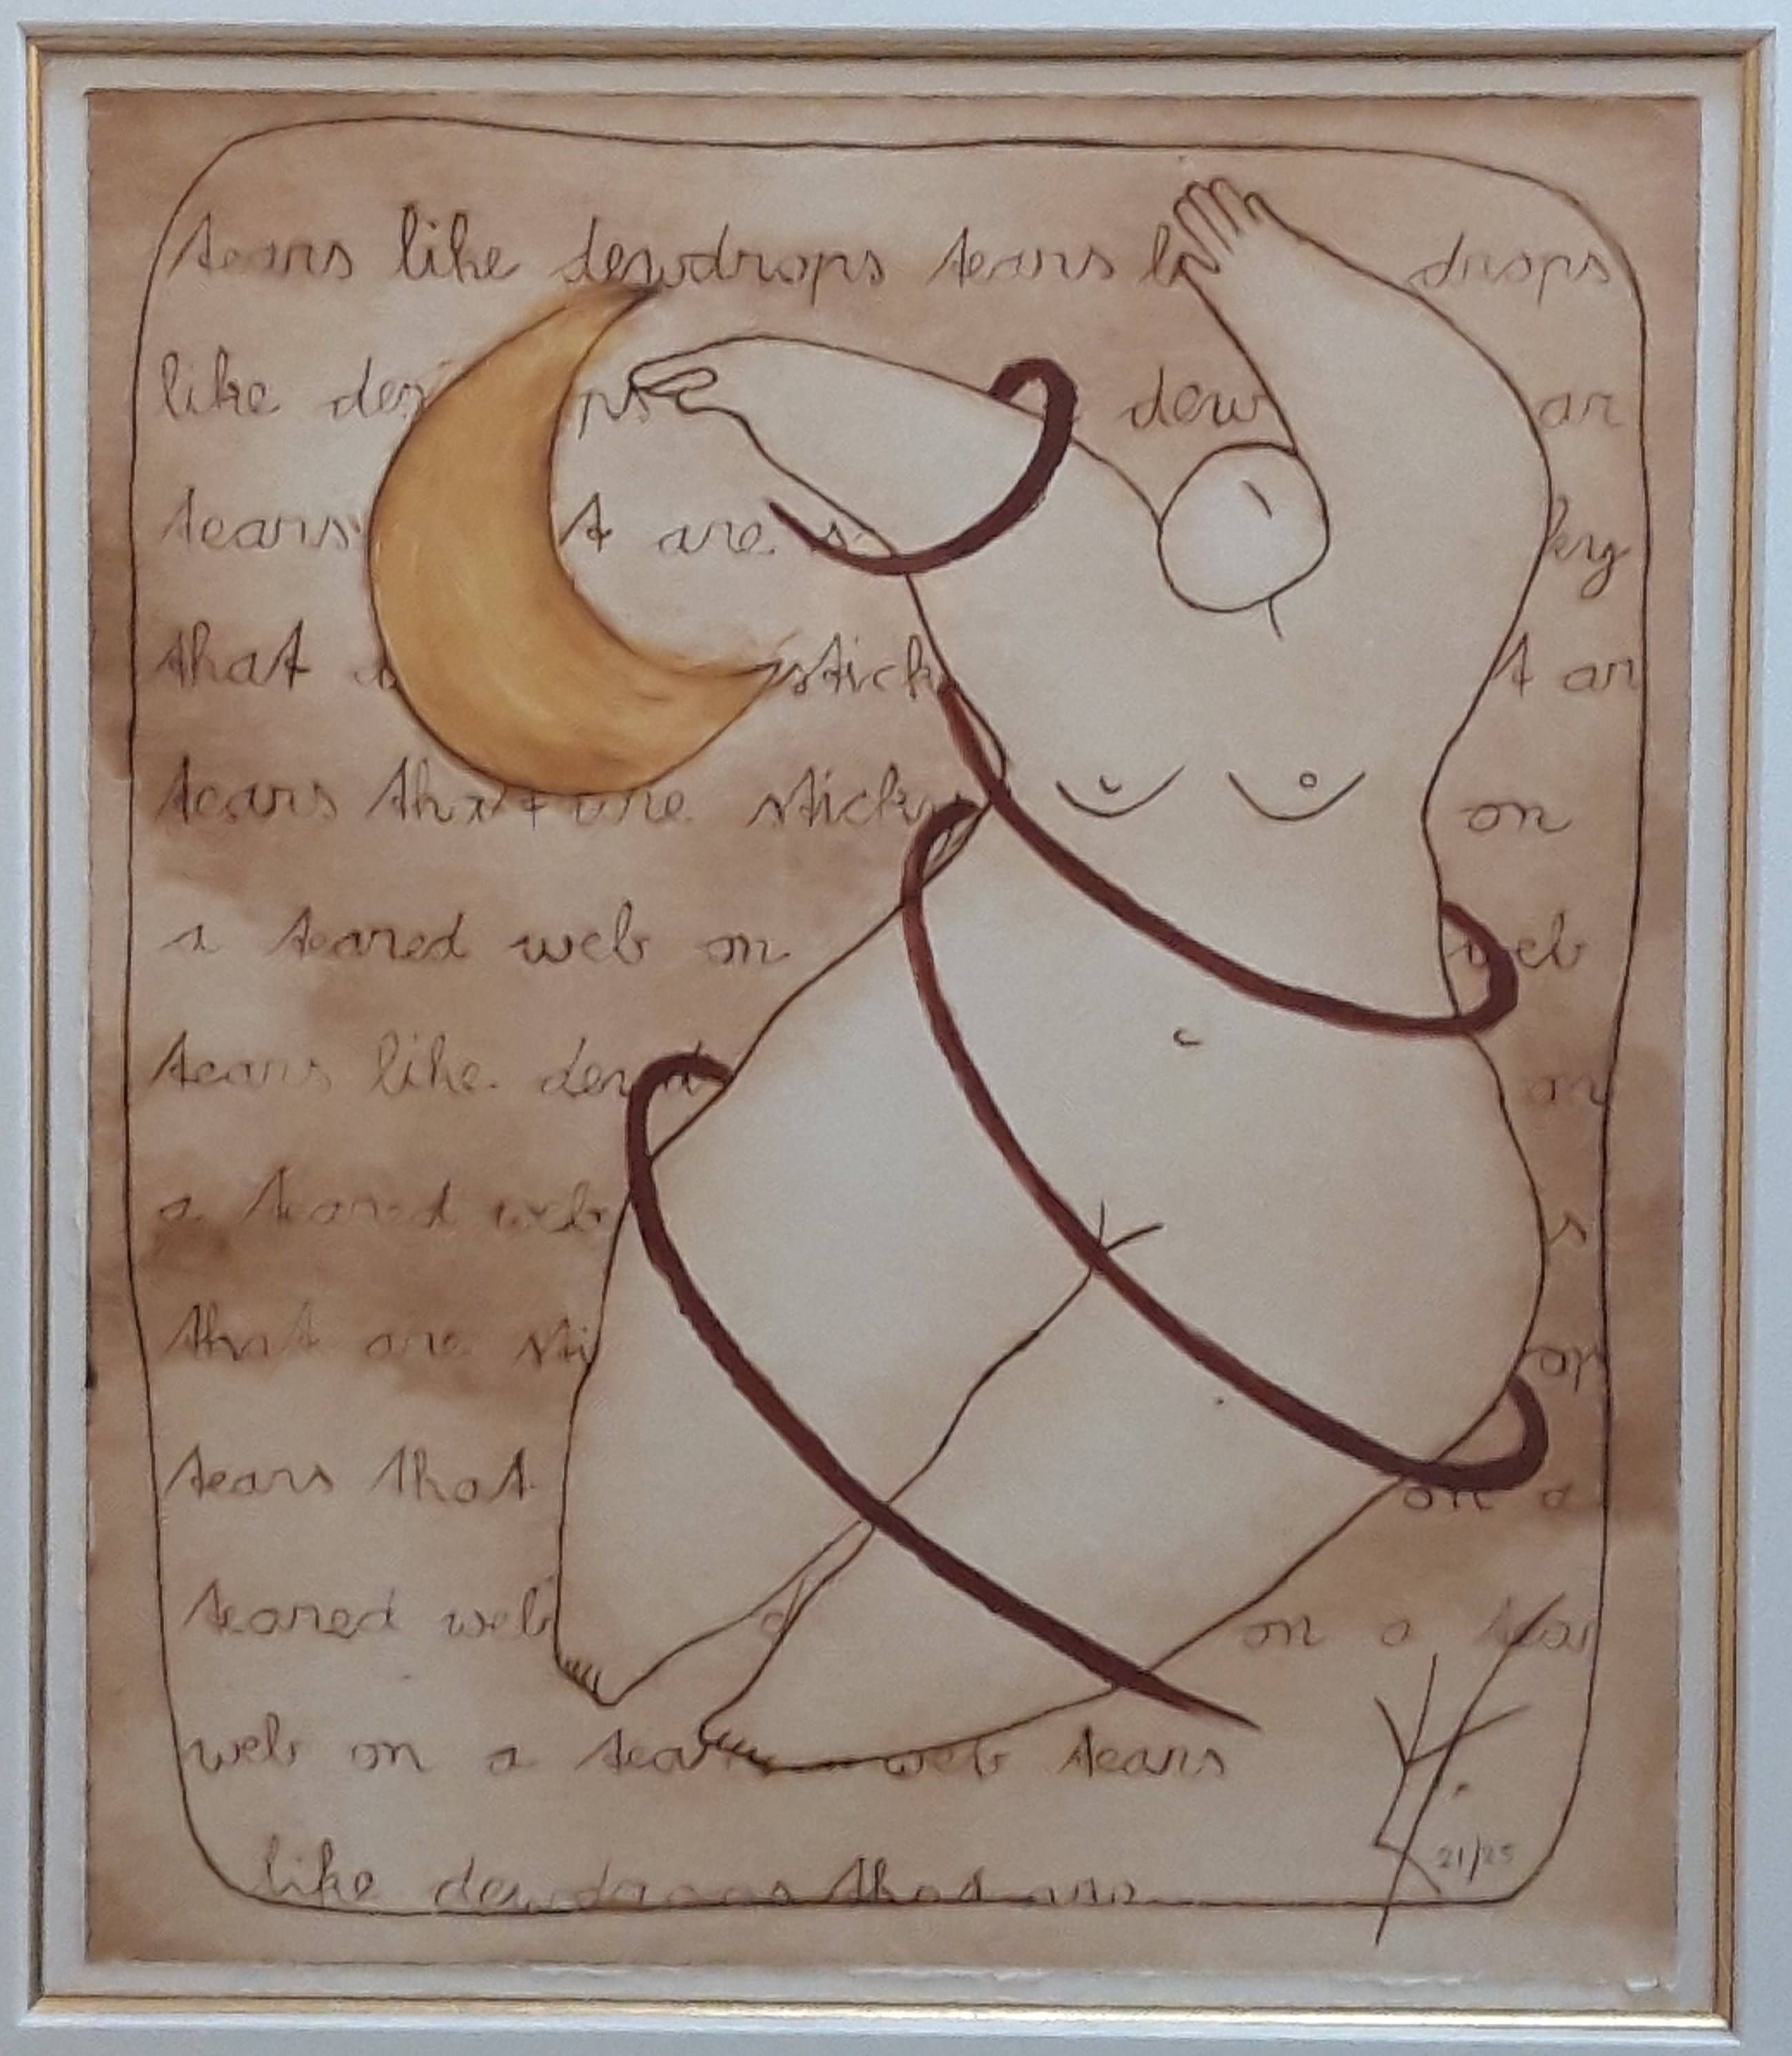 tears like dewdrops tears li drops
like dew ps dew ar
tears t are s ky
that stick t ar
tears that are sticky on
a teared web on web
tears like dewd on
a teared web s
that are sti on
tears that on a
teared web d on a tear
web on a tear web tears
like dewdrops that are
21/25